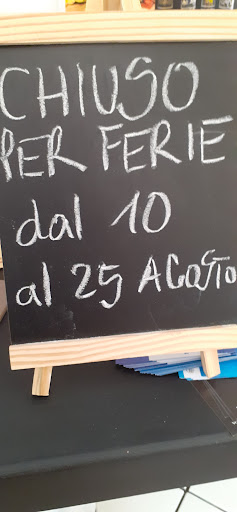 CHIUSO
PER FERIE
dal 10
al 25 AGOSTO